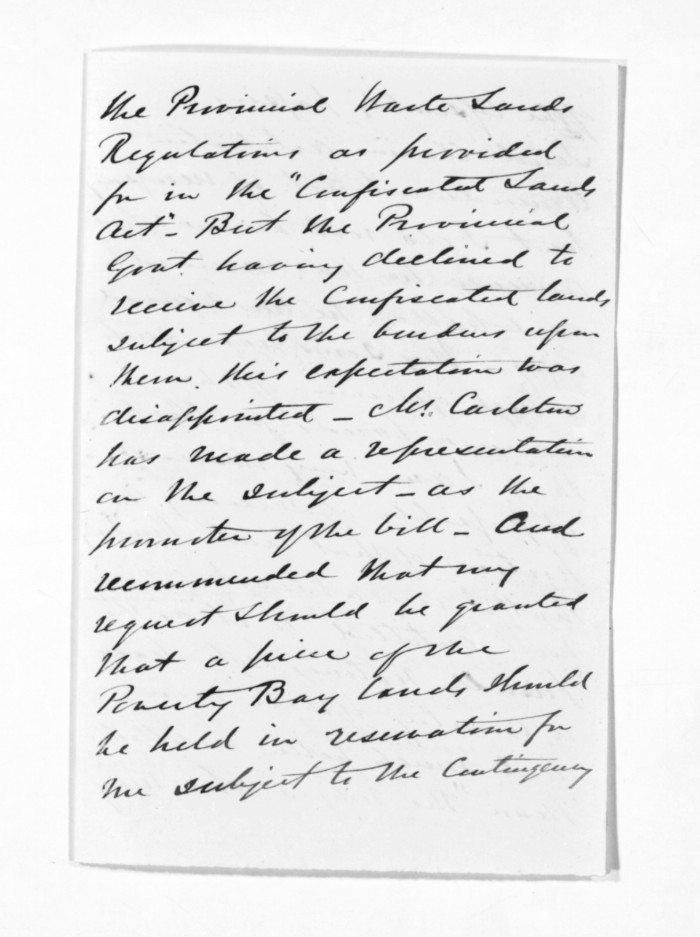 the Provincial Waste Lands
Regulations as provided
for in the "Confiscated Lands
Act" - But the Provincial
Govt having declined to
receive the Confiscated lands
subject to the burdens upon
them. this expectation was
disappointed - Mr. Carleton
has made a representation
on the subject - as the
promoter of the bill - And
recommended that my
request should be granted
that a piece of the
Poverty Bay lands should
be held in reservation for
me subject to the Contingency